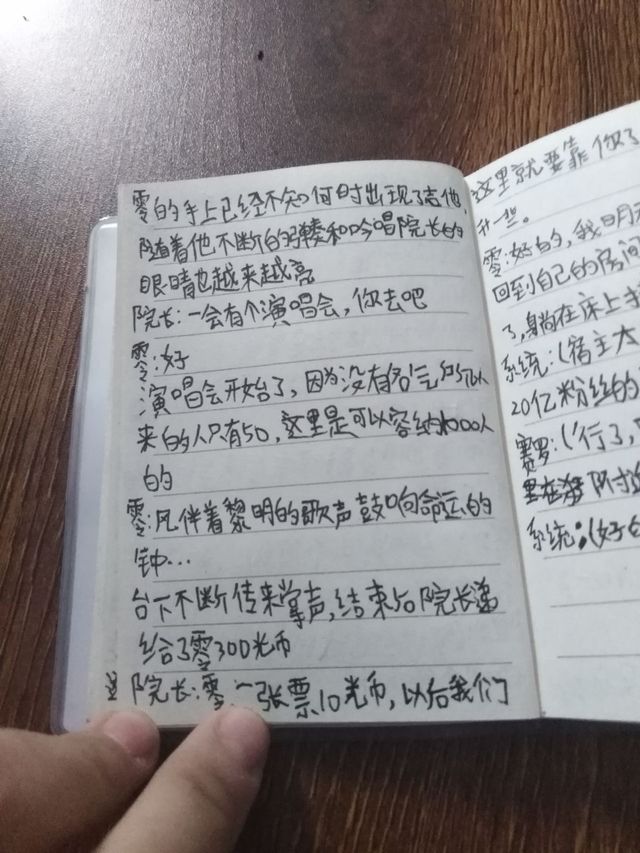 零的手上已经不知何时出现了吉他,
随着他不断的弹奏和吟唱院长的
眼睛也越来越亮
院长:一会有个演唱会,你去吧
零:好
演唱会开始了,因为没有名气所以
来的人只有50,这里是可以容纳1000人
的
零:风伴着黎明的歌声鼓响命运的
钟...
台下不断传来掌声,结束后院长递
给了零300光币
院长:零,一张票10光币,以后我们
这里就要靠你了
升一些。
零:好的,我明天
回到自己的房间
了,躺在床上
系统:(宿主大
20亿粉丝的
赛罗:(行了,
系统:(好